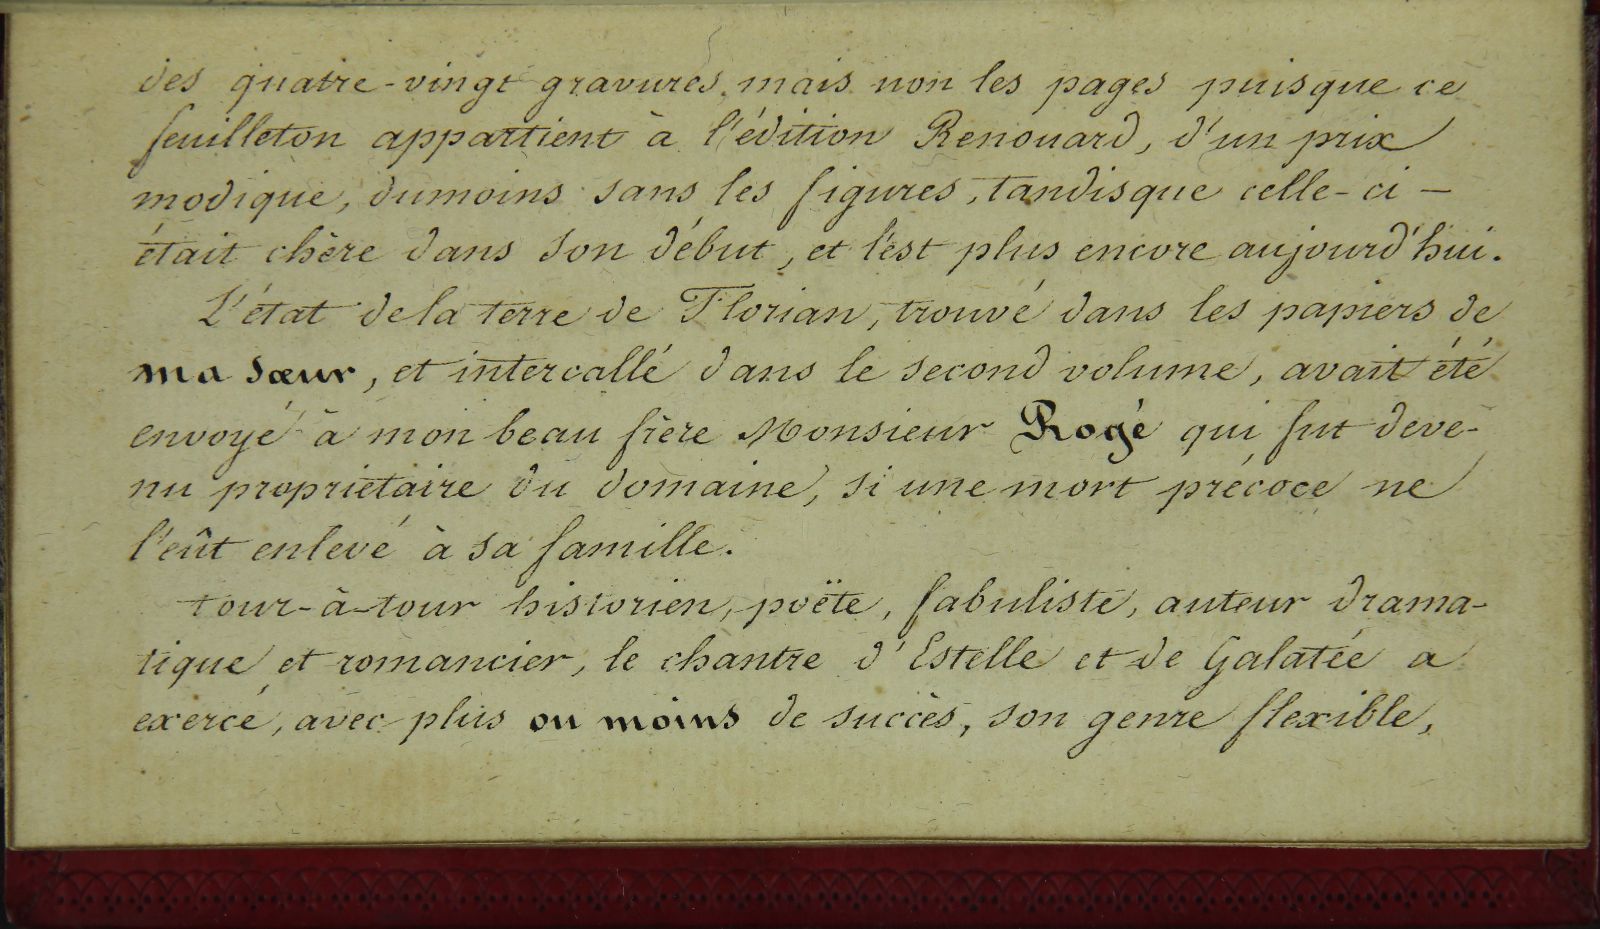 des quatre-vingt gravures, mais non les pages puisque ce
feuilleton appartient à l'édition Renouard, d'un prix
modique, dumoins sans les figures, tandisque celle-ci –
était chère dans son début, et l'est plus encore aujourd'hui.
L'état dela terre de Florian, trouvé dans les papiers de
ma sœur, et intercallé dans le second volume, avait été
envoyé à mon beau frère Monsieur Rogé qui fut deve-
nu propriétaire du domaine, si une mort précoce ne
l'eût enlevé à sa famille.
tour-à-tour historien, poëte, fabuliste, auteur drama-
tique et romancier, le chantre d'Estelle et de Galatée a
exercé, avec plus ou moins de succès, son genre flexible,